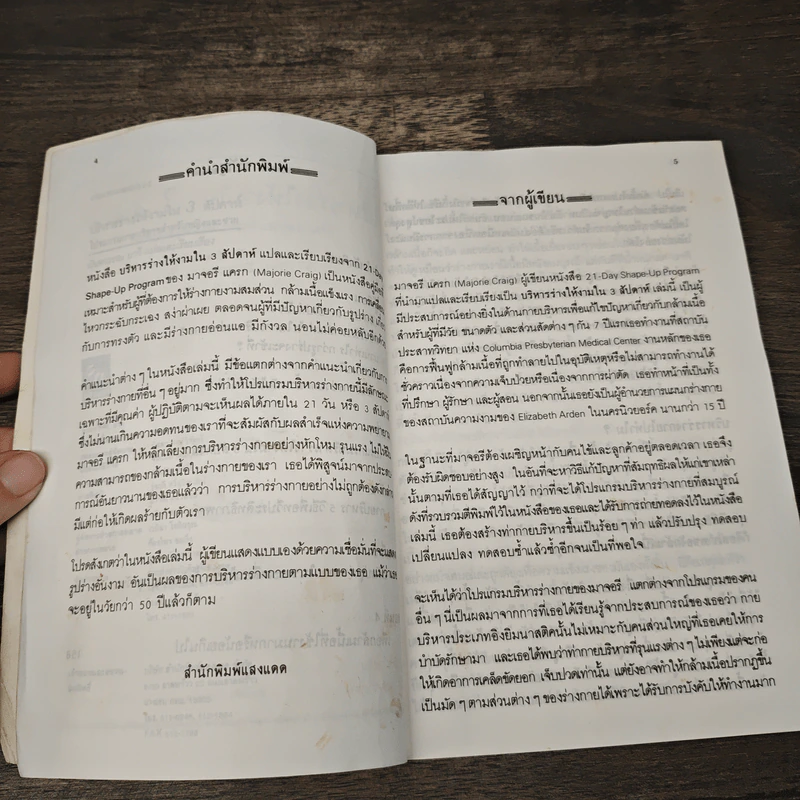 4
คำนำสำนักพิมพ์
หนังสือ บริหารร่างให้งามใน 3 สัปดาห์ แปลและเรียบเรียงจาก 21-Day
Shape-Up Program ของ มาจอรี แครก (Majorie Craig) เป็นหนังสือคู่มือที่
เหมาะสำหรับผู้ที่ต้องการให้ร่างกายงามสมส่วน กล้ามเนื้อแข็งแรง การเคลื่อน
ไหวกระฉับกระเฉง สง่าผ่าเผย ตลอดจนผู้ที่มีปัญหาเกี่ยวกับรูปร่าง
กับการทรงตัว และมีร่างกายอ่อนแอ มีกังวล นอนไม่ค่อยหลับอีกด้วย
คำแนะนำต่าง ๆ ในหนังสือเล่มนี้ มีข้อแตกต่างจากคำแนะนำเกี่ยวกับการ
บริหารร่างกายที่อื่น ๆ อยู่มาก ซึ่งทำให้โปรแกรมบริหารร่างกายนี้มีลักษณะ
เฉพาะที่มีคุณค่า ผู้ปฏิบัติตามจะเห็นผลได้ภายใน 21 วัน หรือ 3 สัปดาห์
ซึ่งไม่นานเกินความอดทนของเราที่จะสัมผัสกับผลสำเร็จแห่งความพยายาม
มาจอรี แครก ให้หลีกเลี่ยงการบริหารร่างกายอย่างหักโหม รุนแรง ไม่ให้ฝืน
ความสามารถของกล้ามเนื้อในร่างกายของเรา เธอได้พิสูจน์มาจากประสบ
การณ์อันยาวนานของเธอแล้วว่า การบริหารร่างกายอย่างไม่ถูกต้องดังกล่าว
มีแต่ก่อให้เกิดผลร้ายกับตัวเรา
โปรดสังเกตว่าในหนังสือเล่มนี้ ผู้เขียนแสดงแบบเองด้วยความเชื่อมั่นที่จะแสดง
รูปร่างอันงาม อันเป็นผลของการบริหารร่างกายตามแบบของเธอ แม้ว่าเธอ
จะอยู่ในวัยกว่า 50 ปีแล้วก็ตาม
สำนักพิมพ์แสงแดด
5
จากผู้เขียน
มาจอรี แครก (Majorie Craig) ผู้เขียนหนังสือ 21-Day Shape-Up Program
ที่นำมาแปลและเรียบเรียงเป็น บริหารร่างให้งามใน 3 สัปดาห์ เล่มนี้ เป็นผู้
มีประสบการณ์อย่างยิ่งในด้านกายบริหารเพื่อแก้ไขปัญหาเกี่ยวกับกล้ามเนื้อ
สำหรับผู้ที่มีวัย ขนาดตัว และส่วนสัดต่าง ๆ กัน 7 ปีแรกเธอทำงานที่สถาบัน
ประสาทวิทยา แห่ง Columbia Presbyterian Medical Center งานหลักของเธอ
คือการฟื้นฟูกล้ามเนื้อที่ถูกทำลายไปในอุบัติเหตุหรือไม่สามารถทำงานได้
ชั่วคราวเนื่องจากความเจ็บป่วยหรือเนื่องจากการผ่าตัด เธอทำหน้าที่เป็นทั้ง
ที่ปรึกษา ผู้รักษา และผู้สอน นอกจากนั้นเธอยังเป็นผู้อำนวยการแผนกร่างกาย
ของสถาบันความงามของ Elizabeth Arden ในนครนิวยอร์ค นานกว่า 15 ปี
ในฐานะที่มาจอรีต้องเผชิญหน้ากับคนไข้และลูกค้าอยู่ตลอดเวลา เธอจึง
ต้องรับผิดชอบอย่างสูง ในอันที่จะหาวิธีแก้ปัญหาที่สัมฤทธิผลให้แก่เขาเหล่า
นั้นตามที่เธอได้สัญญาไว้ กว่าที่จะได้โปรแกรมบริหารร่างกายที่สมบูรณ์
ดังที่รวบรวมตีพิมพ์ไว้ในหนังสือของเธอและได้รับการถ่ายทอดลงไว้ในหนังสือ
เล่มนี้ เธอต้องสร้างท่ากายบริหารขึ้นเป็นร้อย ๆ ท่า แล้วปรับปรุง ทดสอบ
เปลี่ยนแปลง ทดสอบซ้ำแล้วซ้ำอีกจนเป็นที่พอใจ
จะเห็นได้ว่าโปรแกรมบริหารร่างกายของมาจอรี แตกต่างจากโปรแกรมของคน
อื่น ๆ นี่เป็นผลมาจากการที่เธอได้เรียนรู้จากประสบการณ์ของเธอว่า กาย
บริหารประเภทอิงยิมนาสติคนั้นไม่เหมาะกับคนส่วนใหญ่ที่เธอเคยให้การ
บำบัดรักษามา และเธอได้พบว่าท่ากายบริหารที่รุนแรงต่าง ๆ ไม่เพียงแต่จะก่อ
ให้เกิดอาการเคล็ดขัดยอก เจ็บปวดเท่านั้น แต่ยังอาจทำให้กล้ามเนื้อปรากฏขึ้น
เป็นมัด ๆ ตามส่วนต่าง ๆ ของร่างกายได้เพราะได้รับการบังคับให้ทำงานมาก